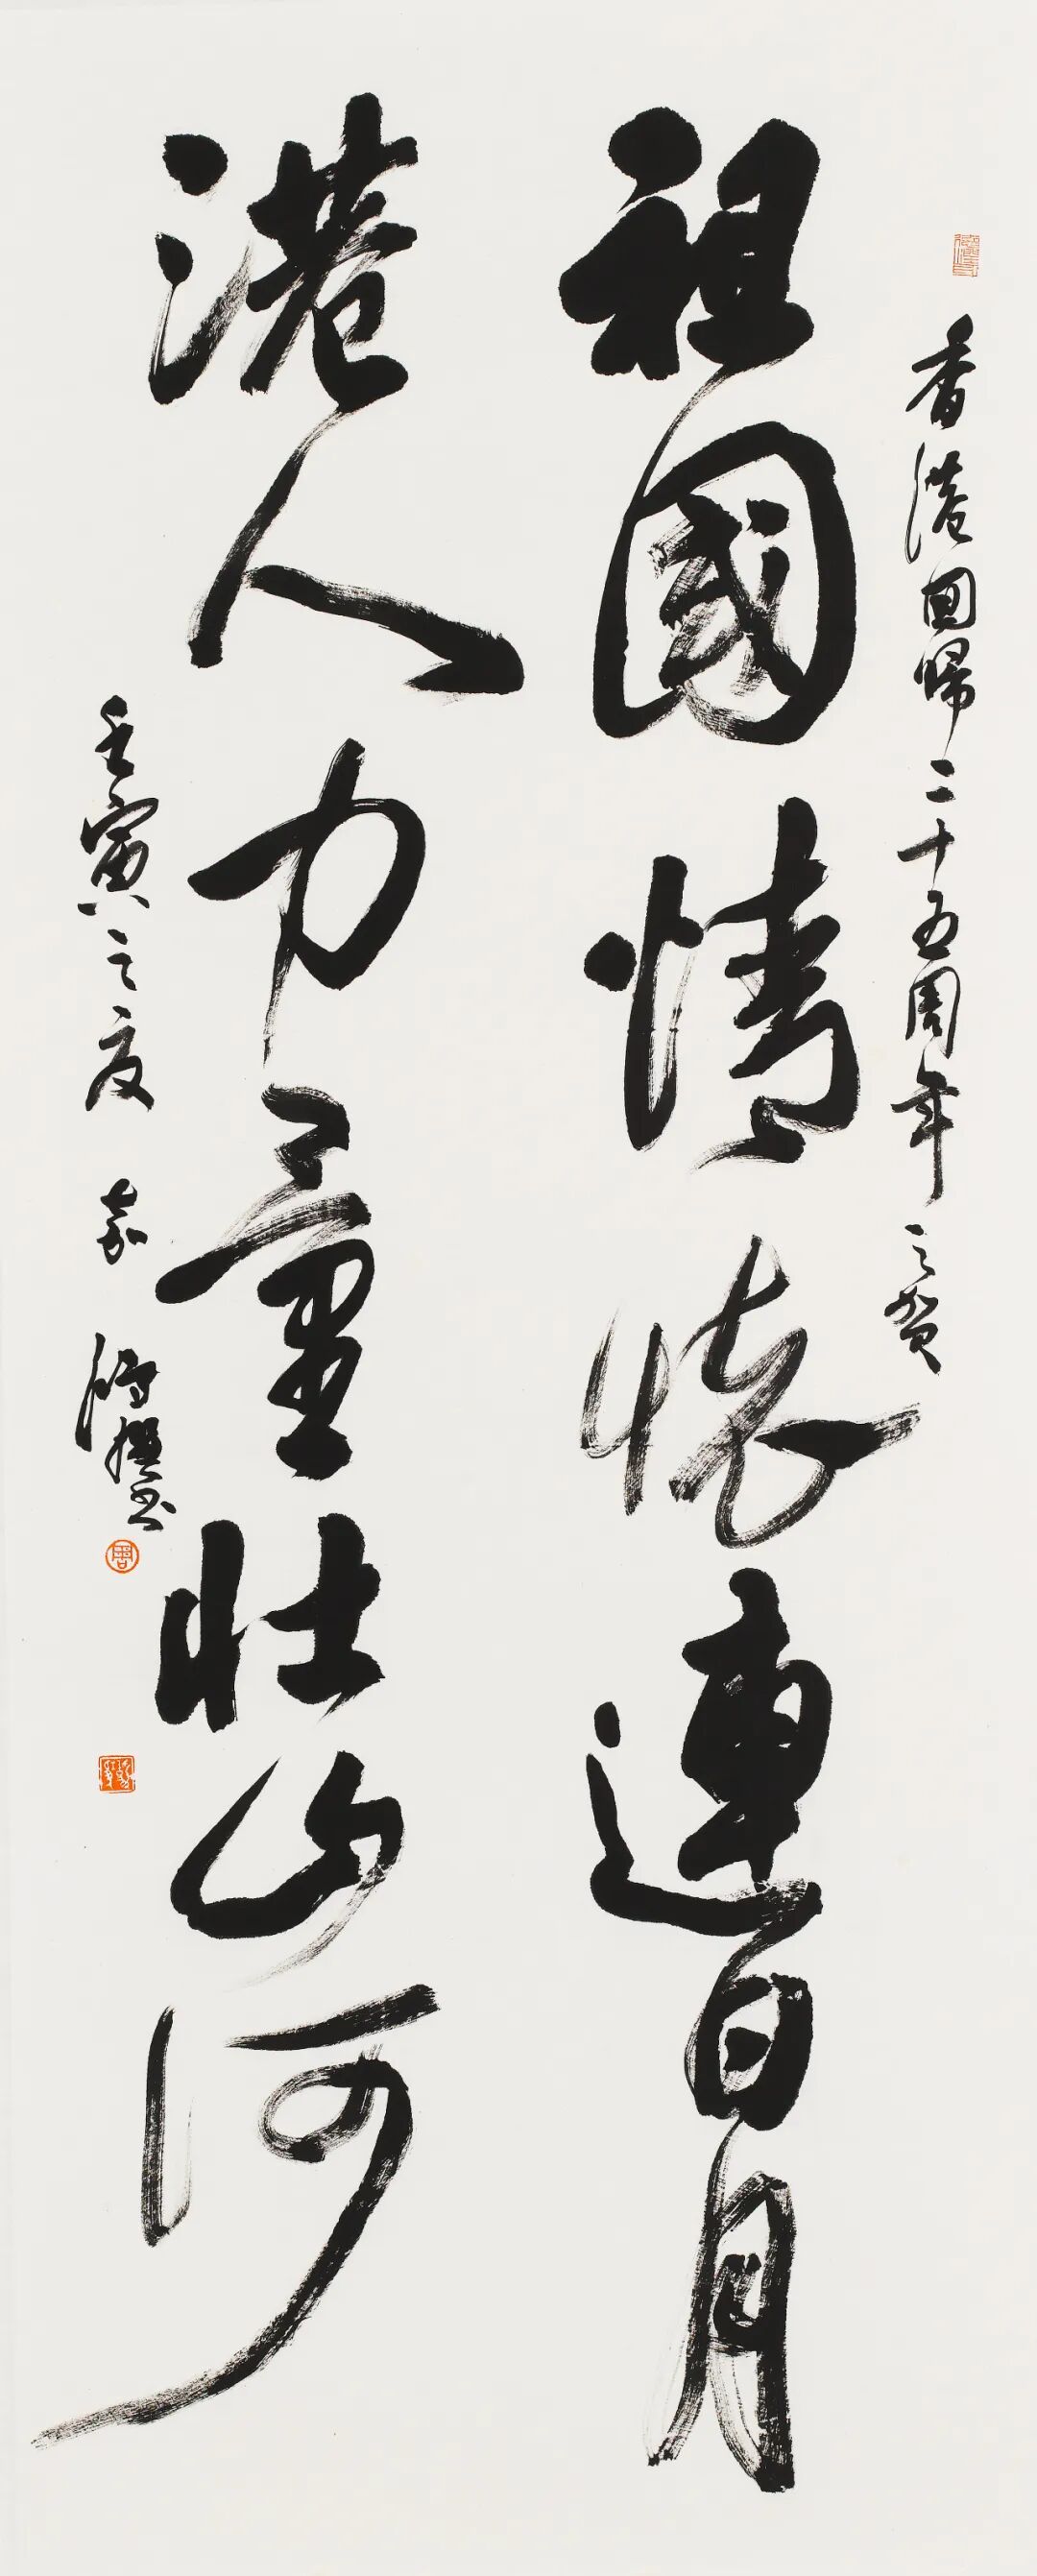 香港回歸二十五周年之賀
祖國情懷連日月
港人力量壯山河
壬寅之夏 撰書